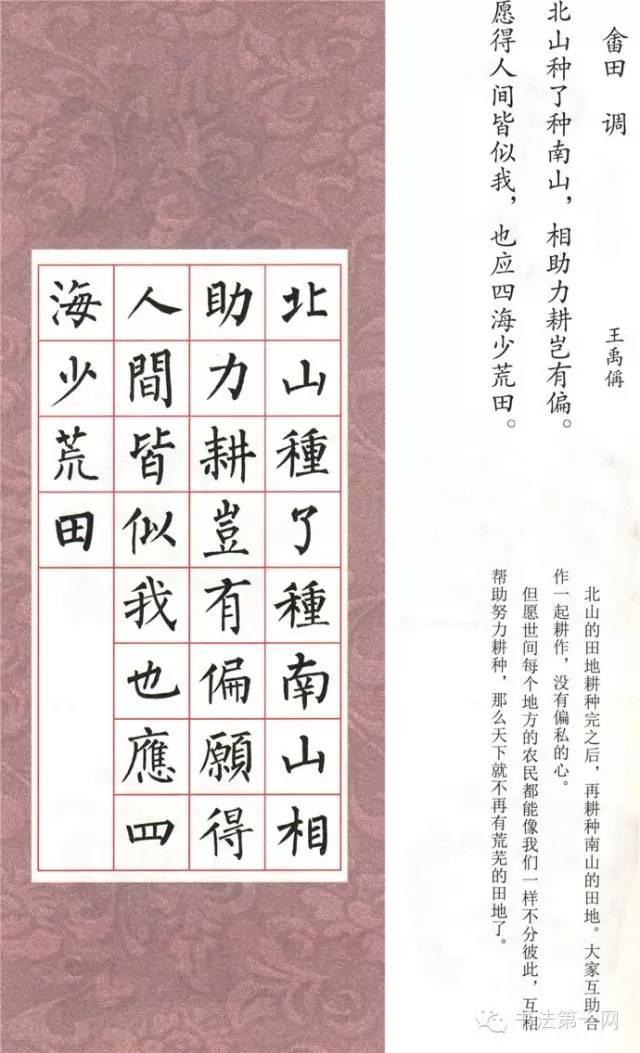 畬田 调
王禹偁
北山种了种南山，相助力耕岂有偏。
愿得人间皆似我，也应四海少荒田。
北山的田地耕种完之后，再耕种南山的田地。大家互助合
作一起耕作，没有偏私的心。
但愿世间每个地方的农民都能像我们一样不分彼此，互相
帮助努力耕种，那么天下就不再有荒芜的田地了。
北山種了種南山相
助力耕豈有偏願得
人間皆似我也應四
海少荒田
书法第一网